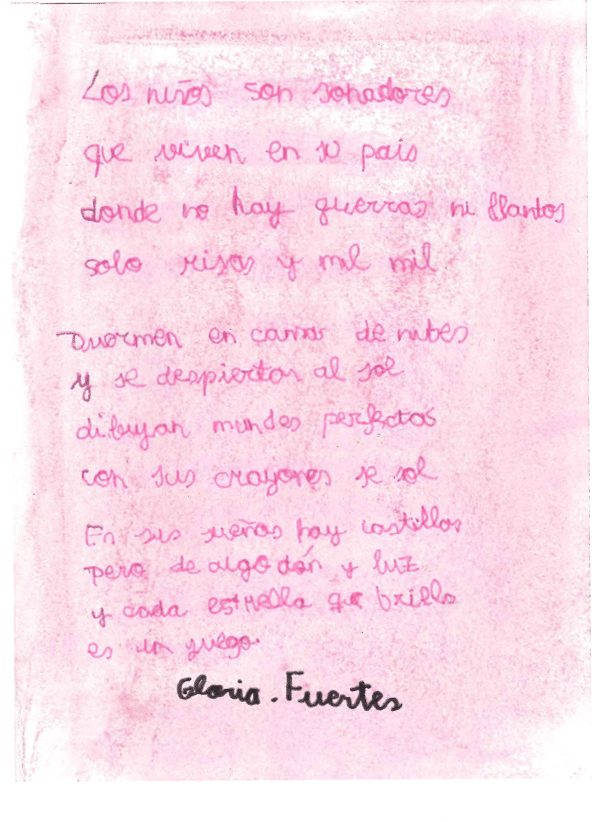 Los niños son soñadores
que viven en su pais
donde no hay guerras ni llantos
solo risas y mil mil
Duermen en camas de nubes
y se despiertan al sol
dibujan mundos perfectos
con sus crayones se sol
En sus sueños hay castillos
pero de algodón y luz
y cada estrella que brilla
es un juego
Gloria. Fuertes